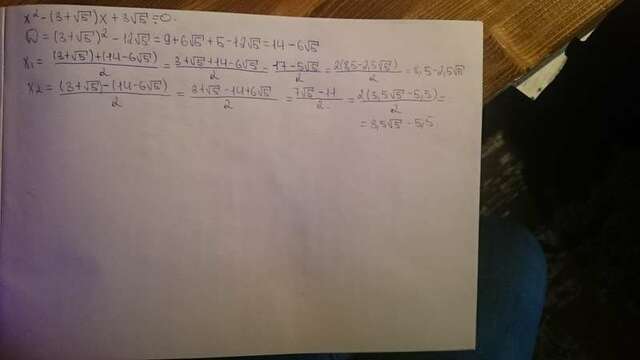 x² - (3+√5)x + 3√5 = 0.
D = (3+√5)² - 12√5 = 9 + 6√5 + 5 - 12√5 = 14 - 6√5
x₁ = ((3+√5)+(14-6√5))/2 = (3+√5+14-6√5)/2 = (17-5√5)/2 = 2(8,5-2,5√5)/2 = 8,5-2,5√5
x₂ = ((3+√5)-(14-6√5))/2 = (3+√5-14+6√5)/2 = (7√5-11)/2 = 2(3,5√5-5,5)/2 =
= 3,5√5-5,5